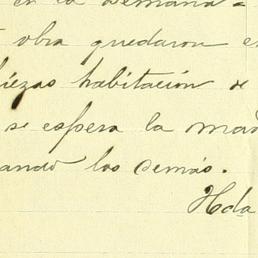 en la semana =
obra quedaron e
piezas habitación de
se espera la ma
ando los demás.
Hda